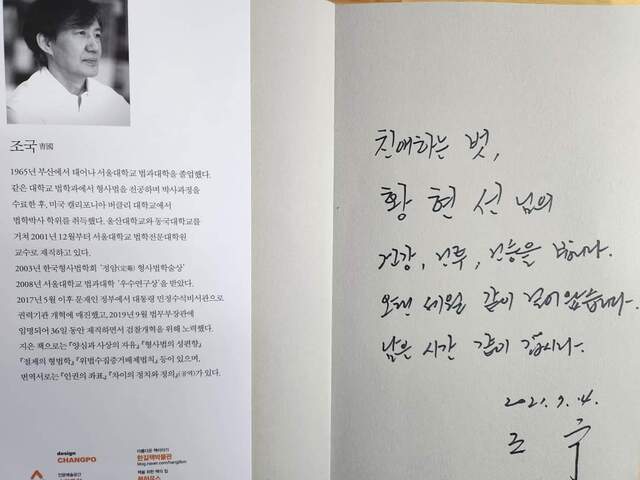 조국 曺國
1965년 부산에서 태어나 서울대학교 법과대학을 졸업했다.
같은 대학교 법학과에서 형사법을 전공하며 박사과정을
수료한 후, 미국 캘리포니아 버클리 대학교에서
법학박사 학위를 취득했다. 울산대학교와 동국대학교를
거쳐 2001년 12월부터 서울대학교 법학전문대학원
교수로 재직하고 있다.
2003년 한국형사법학회 ‘정암(定菴) 형사법학술상’
2008년 서울대학교 법과대학 ‘우수연구상’을 받았다.
2017년 5월 이후 문재인 정부에서 대통령 민정수석비서관으로
권력기관 개혁에 매진했고, 2019년 9월 법무부장관에
임명되어 36일 동안 재직하면서 검찰개혁을 위해 노력했다.
지은 책으로는 『양심과 사상의 자유』 『형사법의 성편향』
『절제의 형법학』 『위법수집증거배제법칙』 등이 있으며,
번역서로는 『인권의 좌표』 『차이의 정치와 정의』(공역)가 있다.
design
CHANGPO
아름다운 책이야기
한길책박물관
blog.naver.com/hangilbm
인문예술공간
책을 위한 책의 집
북하우스
친애하는 벗,
황현선 님의
건강, 건투, 건승을 빕니다.
오랜 세월 같이 걸어왔습니다.
남은 시간 같이 갑시다.
2021. 7. 4.
조국